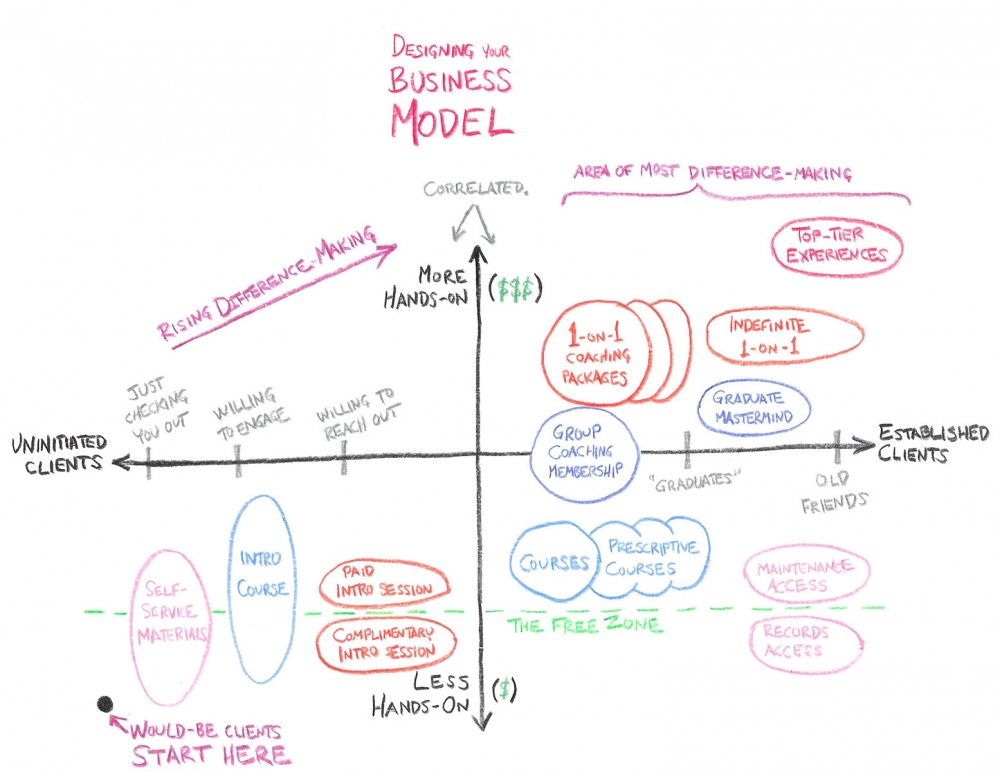 DESIGNING YOUR
BUSINESS
MODEL
AREA OF MOST DIFFERENCE-MAKING
CORRELATED.
RISING DIFFERENCE-MAKING
TOP-TIER
EXPERIENCES
MORE
HANDS-ON
($$$)
1-ON-1
COACHING
PACKAGES
INDEFINITE
1-ON-1
JUST
CHECKING
YOU OUT
WILLING
TO ENGAGE
WILLING TO
REACH OUT
GRADUATE
MASTERMIND
UNINITIATED
CLIENTS
GROUP
COACHING
MEMBERSHIP
ESTABLISHED
CLIENTS
"GRADUATES"
OLD
FRIENDS
SELF-
SERVICE
MATERIALS
INTRO
COURSE
PAID
INTRO SESSION
COURSES
PRESCRIPTIVE
COURSES
MAINTENANCE
ACCESS
THE FREE ZONE
COMPLIMENTARY
INTRO SESSION
RECORDS
ACCESS
LESS
HANDS-ON
($)
WOULD-BE CLIENTS
START HERE